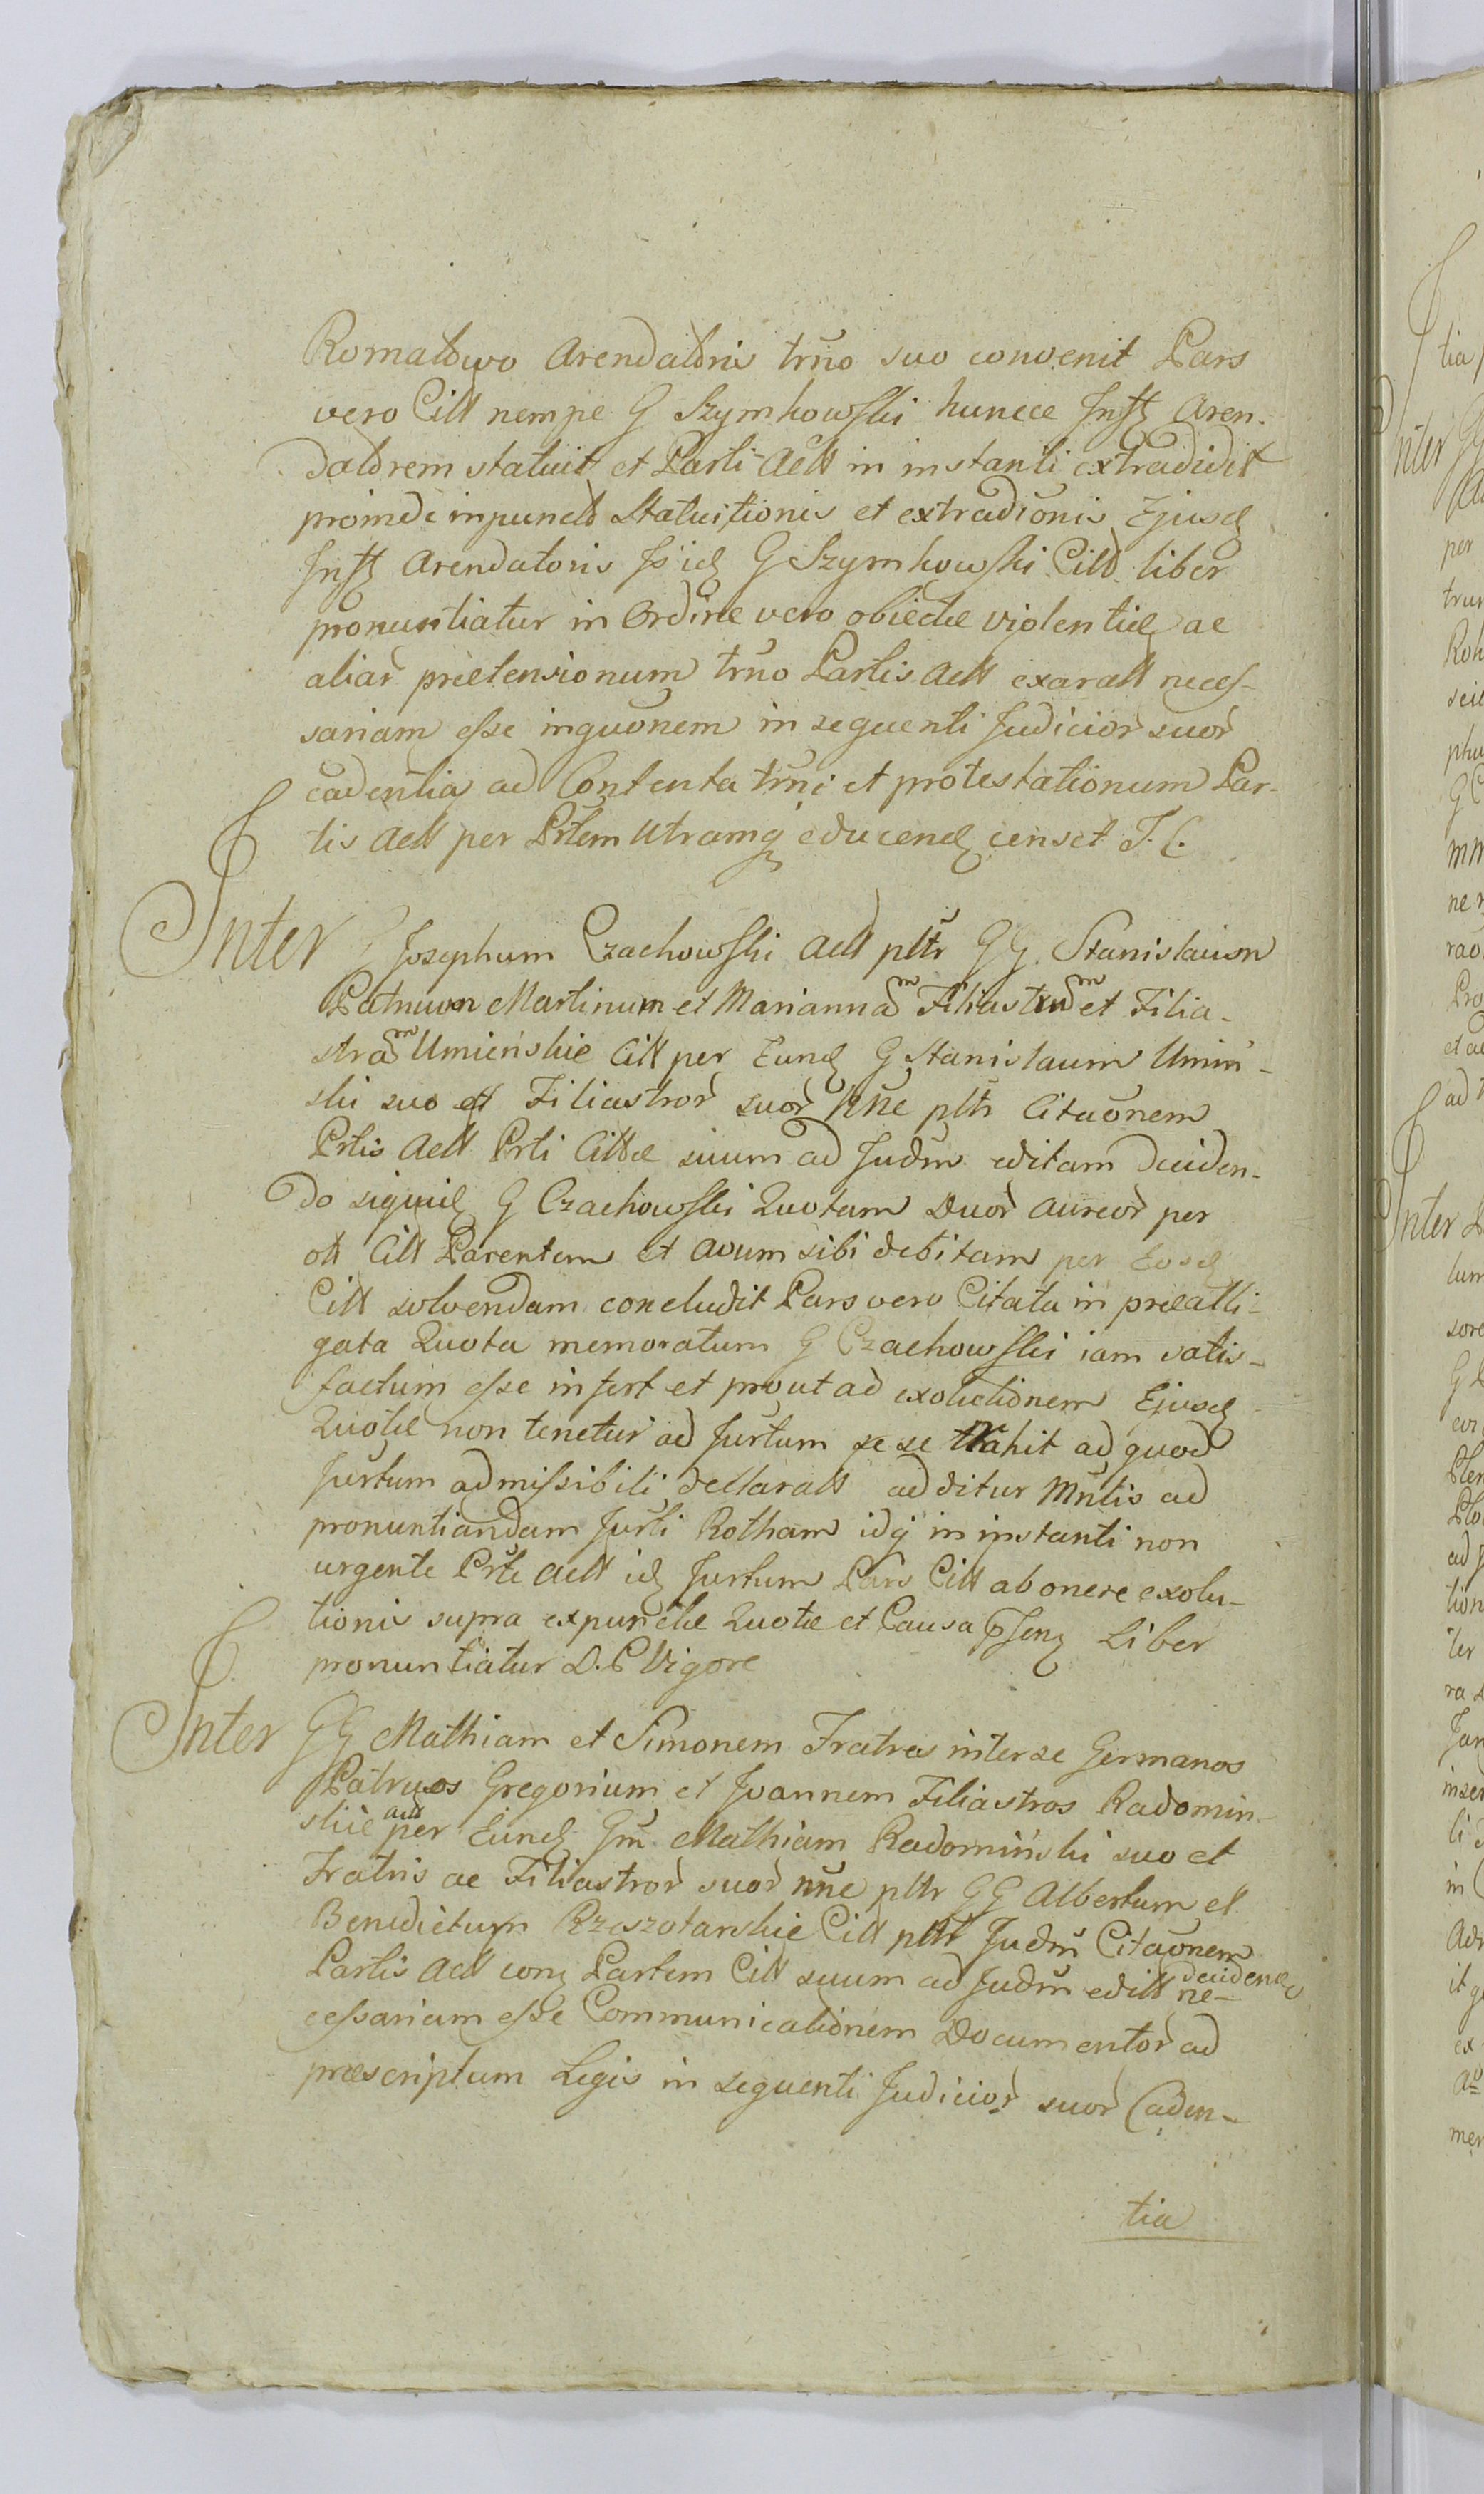 Romatowo Arendatoris trño suo convenit Pars
vero Citt nempe G Szymkowski hunece Inftt Aren-
datorem statuit et Parti Actt in instanti extradidit
proinde in puncto Statuitionis et extradionis Ejusd
Inftt Arendatoris G Szymkowski Citt liber
pronuntiatur in Ordine vero obiectæ violentiæ ac
aliar prætensionum trño Partis Actt exaratt neces-
sariam esse inqvonem in sequenti Judicior suor
cadentia ad Contenta trñi et protestationum Par-
tis Actt per Prtem Utramq educend censet T. C.
Inter G Josephum Czachowski Actt pltr GG. Stanislaum
Patruum Martinum et Mariannam Filiastrum et Filia-
stram Umienskie Citt per Eund G Stanislaum Umin-
ski suo et Filiastror suor nñe pltr Citaonem
Prtis Actt Prti Cittæ suum ad Judm editam deciden-
do siquid G Czachowski Quotam Duor aureor per
ott Citt Parentem et avum sibi debitam per Eosd
Citt solvendam concludit Pars vero Citata in præalli-
gata Quota memoratum G Czachowski iam satis-
factum esse infert et prout ad exolutionem Ejusd
Quotæ non tenetur ad Jurtum se se trahit ad quod
Jurtum admissibili declaratt additur Mntis ad
pronuntiandam Jurti Rotham idq in instanti non
urgente Prte Actt id Jurtum Pars Citt ab onere exolu-
tionis supra expunctæ Quotæ et Causa Liber
pronuntiatur D. P Vigore
Inter GG Mathiam et Simonem Fratres inter se Germanos
Patruos Gregorium et Joannem Filiastros Radomin-
skie actt per Eund Gm Mathiam Radomiński suo et
Fratris ac Filiastror suor nñe pltr GG Albertum et
Benedictum Rzeszotarskie Citt pltr Judm Citaonem
Partis Actt con Partem Citt suum ad Judm editt decidend ne-
cessariam esse Communicationem Documentor ad
præscriptum Legis in sequenti Judicior suor Caden-
tia